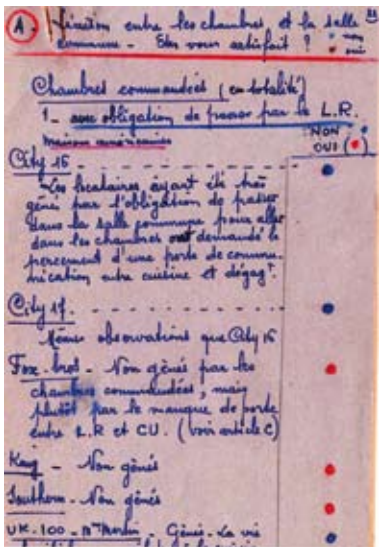 A. Liaison entre les chambres et la salle
commune - Etes vous satisfait ? • non
• oui
Chambres commandées (en totalité)
1 - avec obligation de passer par la L.R.
Maison américaines
NON •
OUI (•)
City 15
Les locataires, ayant été très
gênés par l'obligation de passer
dans la salle commune pour aller
dans les chambres ont demandé le
percement d'une porte de commu-
nication entre cuisine et dégagt.
City 17.
Mêmes observations que City 15
Fox. brot - Non gênés par les
chambres commandées, mais
plutôt par le manque de porte
entre L.R et CU. (voir article C)
Kay - Non gênés
Southern - Non gênés
UK.100 - - Gênés - La vie